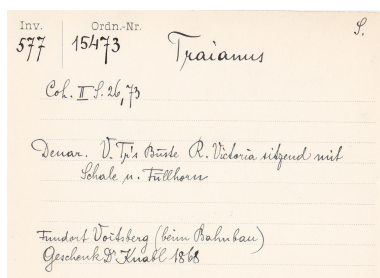 Inv. Ordn.-Nr. S.
577 15473 Traianus
Coh. II S. 26, 73
Denar. V. Tr's Büste R. Victoria sitzend mit
Schale u. Füllhorn
Fundort Voitsberg (beim Bahnbau)
Geschenk Dr Knabl 1868